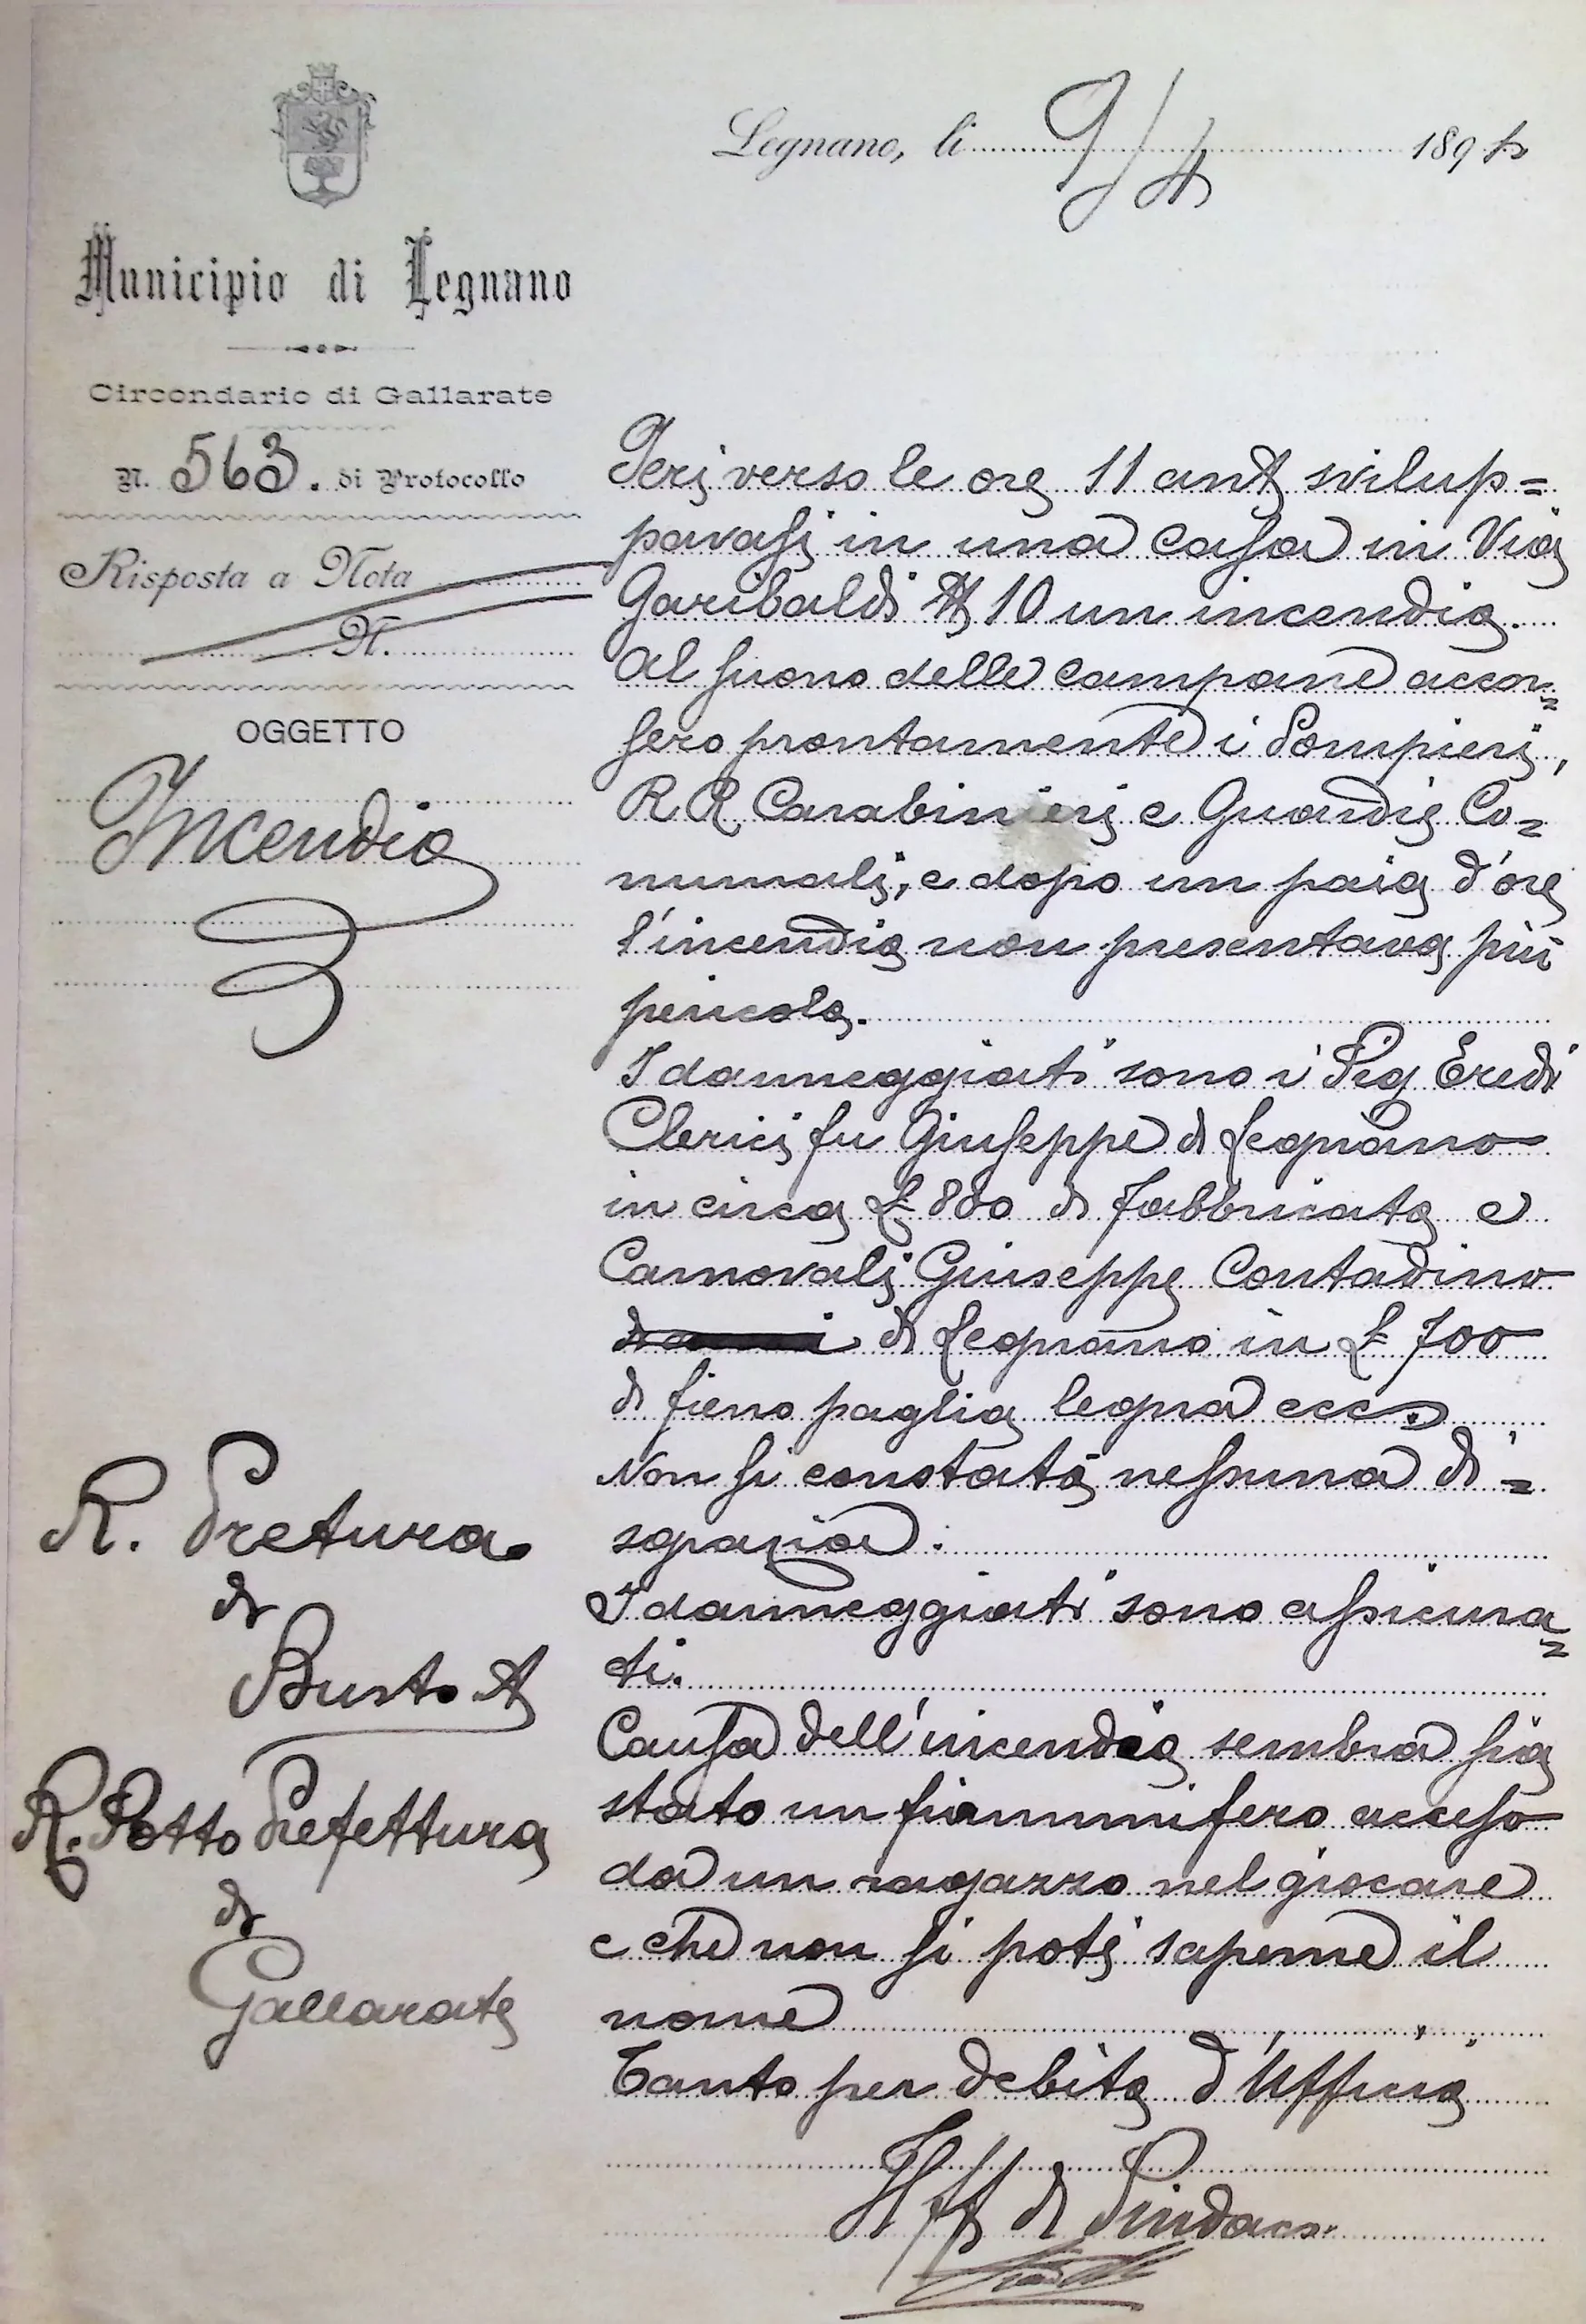 Legnano, li 9/4 1894
Municipio di Legnano
Circondario di Gallarate
N. 563. di Protocollo
Risposta a Nota
N.
OGGETTO
Incendio
R. Pretura
di
Busto A
R. Sotto Prefettura
di
Gallarate
Ieri verso le ore 11 ant svilup=
pavasi in una casa in Via
Garibaldi N 10 un incendio.
Al suono delle campane accor=
sero prontamente i Pompieri,
R R Carabinieri e Guardie Co=
munali, e dopo un paio d'ore
l'incendio non presentava più
pericolo.
I danneggiati sono i Sig Eredi
Clerici fu Giuseppe di Legnano
in circa £ 800 di fabbricato e
Carnovali Giuseppe Contadino
di Legnano in £ 700
di fieno paglia legna ecc.
Non si constatò nessuna di=
sgrazia.
I danneggiati sono assicura=
ti.
Causa dell'incendio sembra sia
stato un fiammifero acceso
da un ragazzo nel giocare
e che non si potè saperne il
nome
Tanto per debito d'Ufficio
Il ff di Sindaco